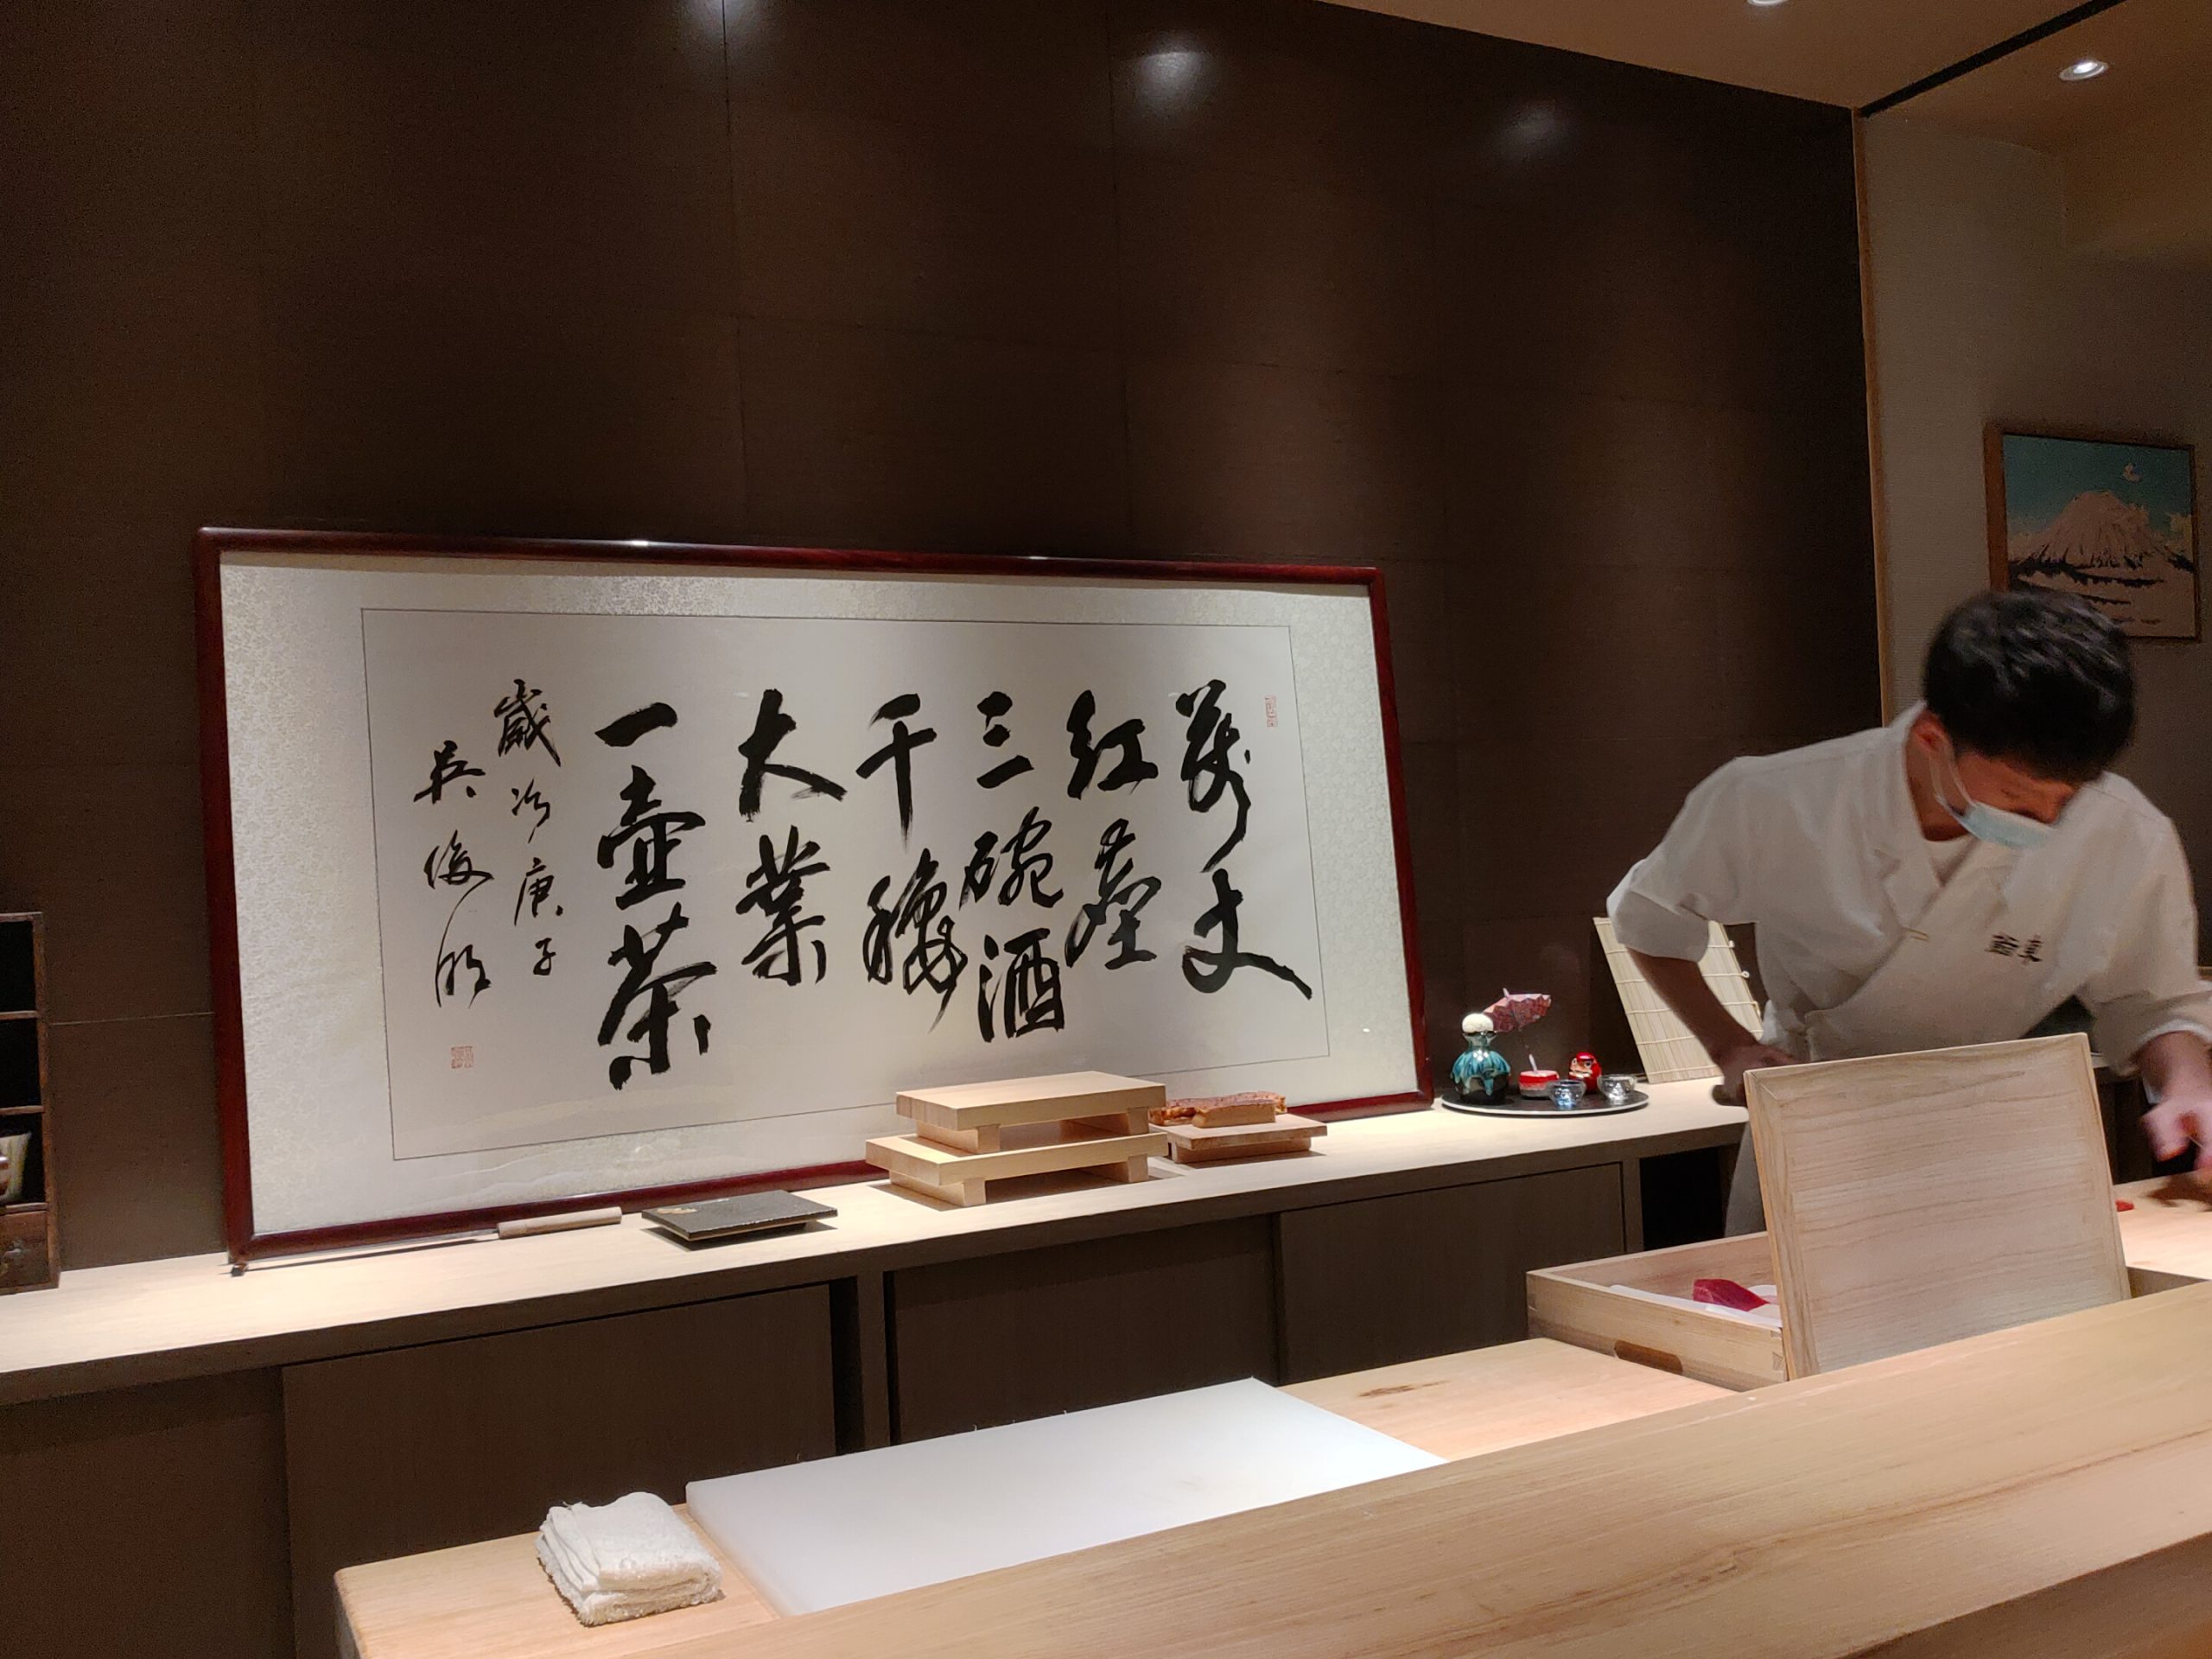 萬丈
紅塵
三碗酒
千穐
大業
一壺茶
歲次庚子
吳俊